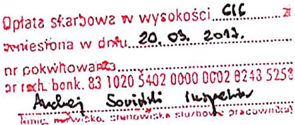 Opłata skarbowa w wysokości
wniesiona w dniu 20.03.2017.
nr pokwitowania
nr rach. bank. 83 1020 5402 0000 0002 8243 5258
Andrzej
Imię, nazwisko, stanowisko służbowe pracownika